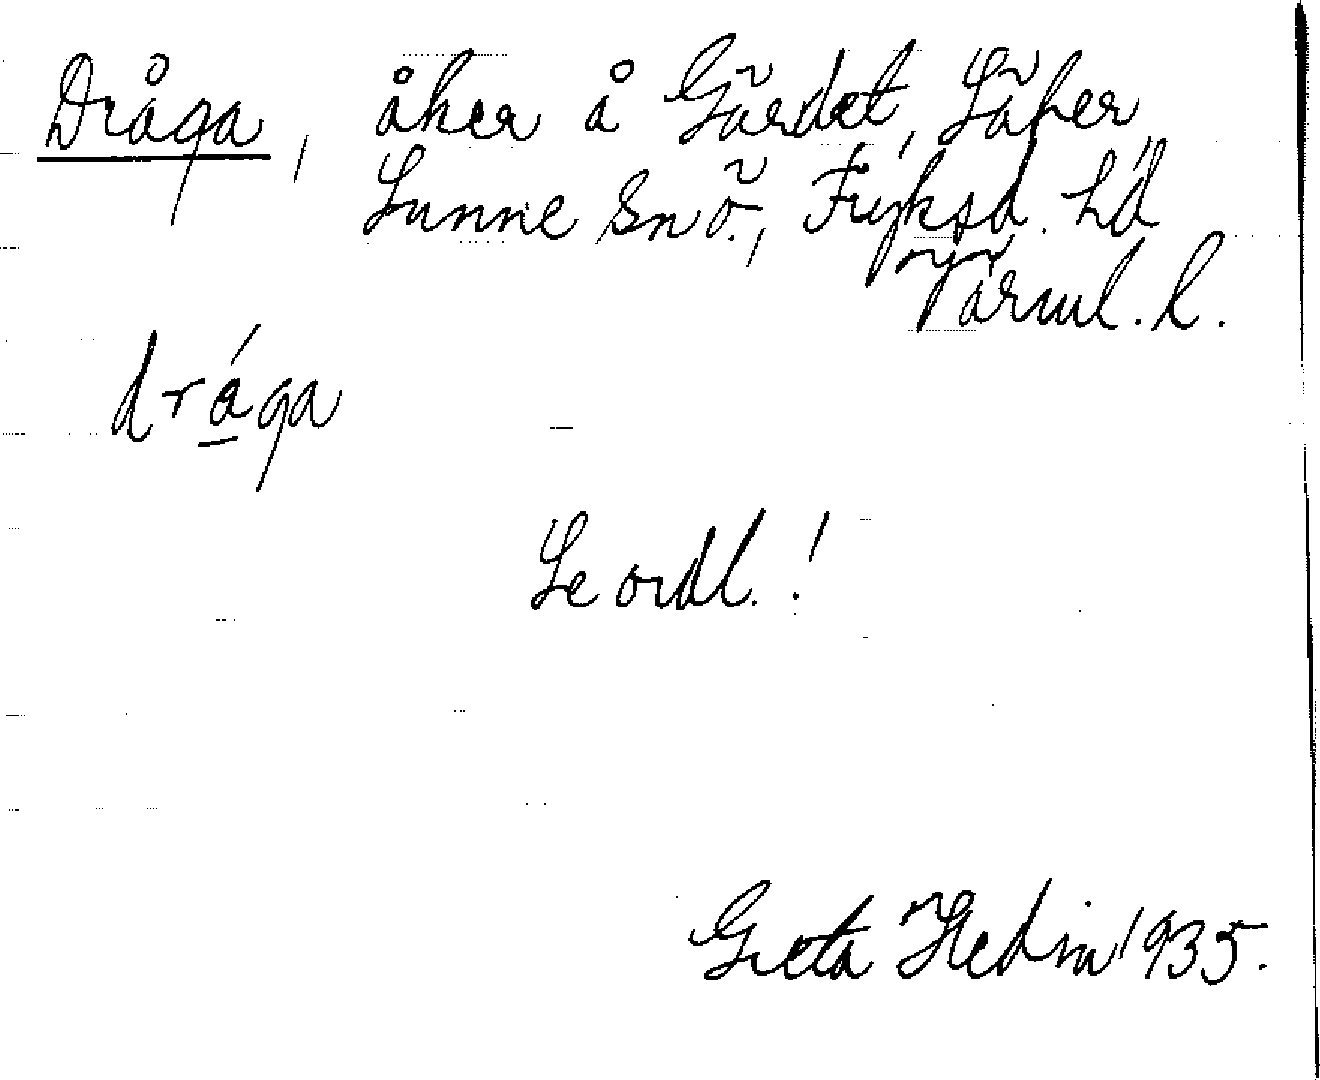 Dråga, åker å Gärdet, Säter,
Sunne sn ö., Fryksd. hd
Värml. l.
drága
Se ordl.!
Greta Hedin 1935.